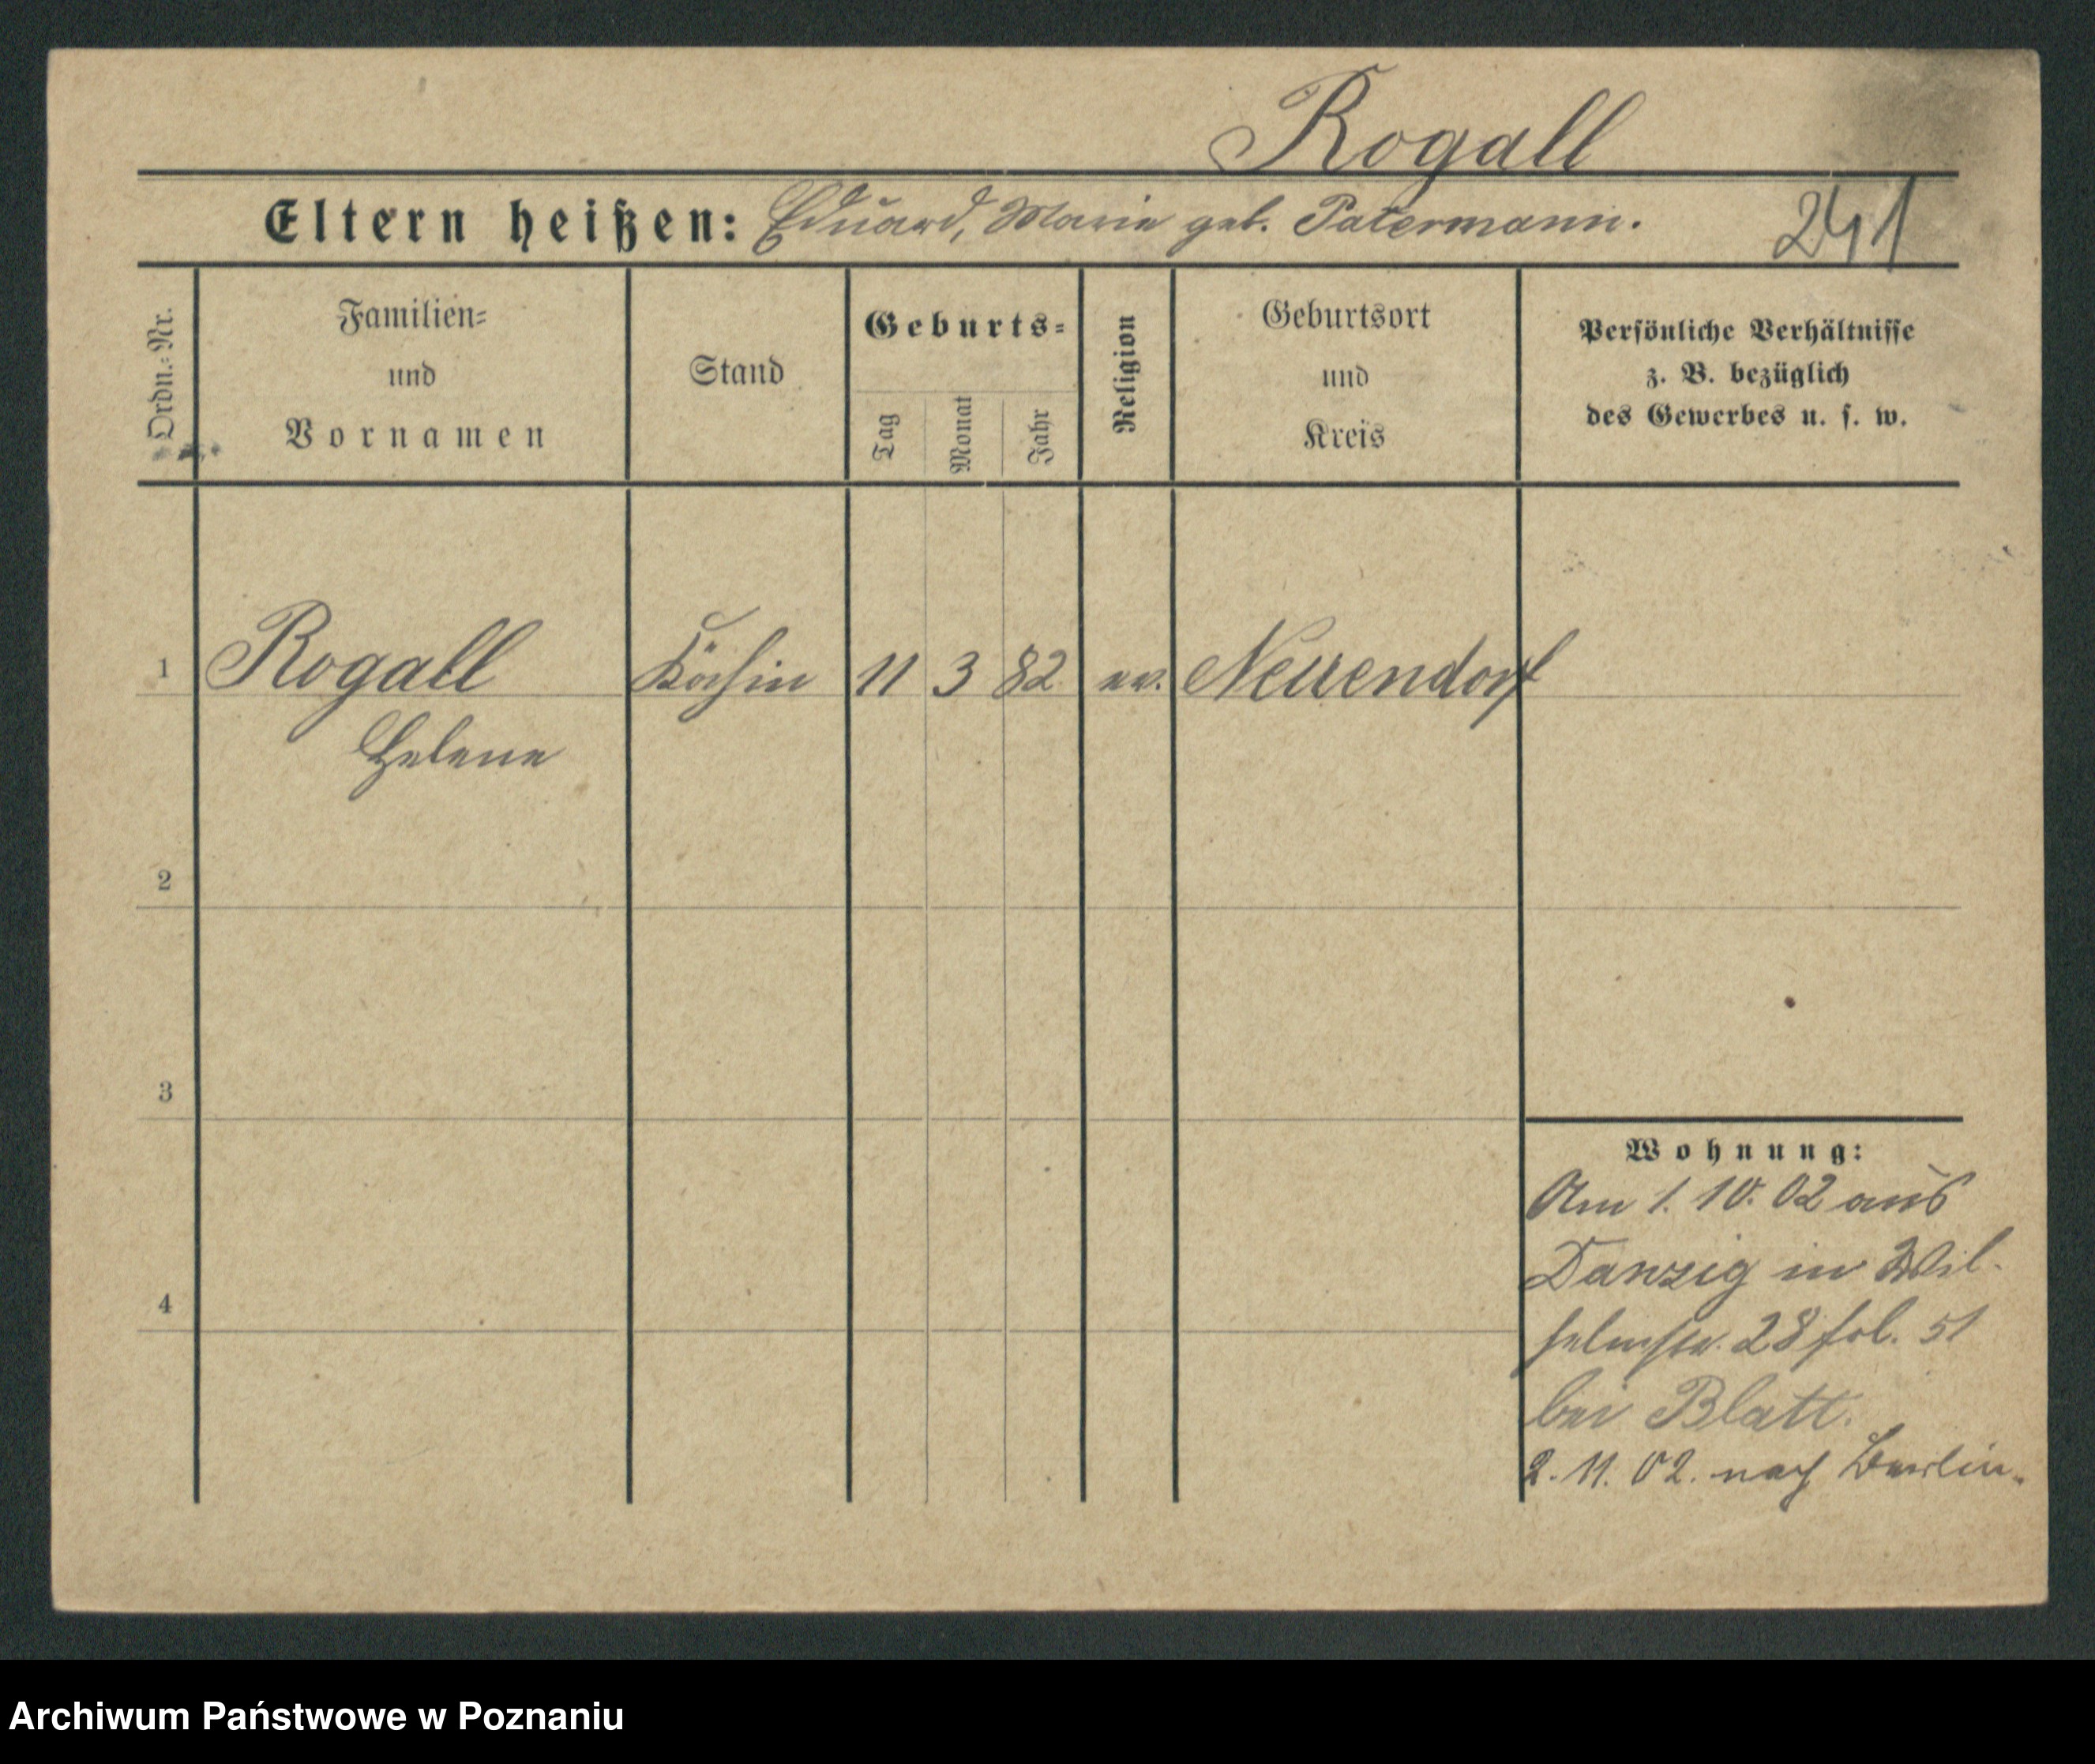 Rogall
Eltern heißen: Eduard, Marie geb. Patermann.
241
Ordn.-Nr.
Familien-
und
Vornamen
Stand
Geburts-
Tag
Monat
Jahr
Religion
Geburtsort
und
Kreis
Persönliche Verhältnisse
z. B. bezüglich
des Gewerbes u. s. w.
1 Rogall Köchin 11 3 82 ev. Neuendorf
Helene
2
3
4
Wohnung:
Am 1. 10. 02 aus
Danzig in Wil-
helmstr. 28 fol. 51
bei Blatt.
2. 11. 02. nach Berlin.
Archiwum Państwowe w Poznaniu